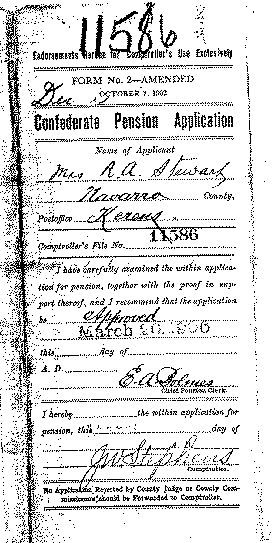 11586
Endorsements Hereon for Comptroller's Use Exclusively
FORM No. 2—AMENDED
OCTOBER 7, 1902
Confederate Pension Application
Name of Applicant
Mrs R A Stewart
Navarro County,
Postoffice Kerens
Comptroller's File No. 11586
I have carefully examined the within applica-
tion for pension, together with the proof in sup-
port thereof, and I recommend that the application
be Approved
March 1906
this day of
A. D.
E. A. Bolmes
Chief Pension Clerk.
I hereby the within application for
pension, this day of
J W Stephens
Comptroller.
No Application Rejected by County Judge or County Com-
missioners should be Forwarded to Comptroller.